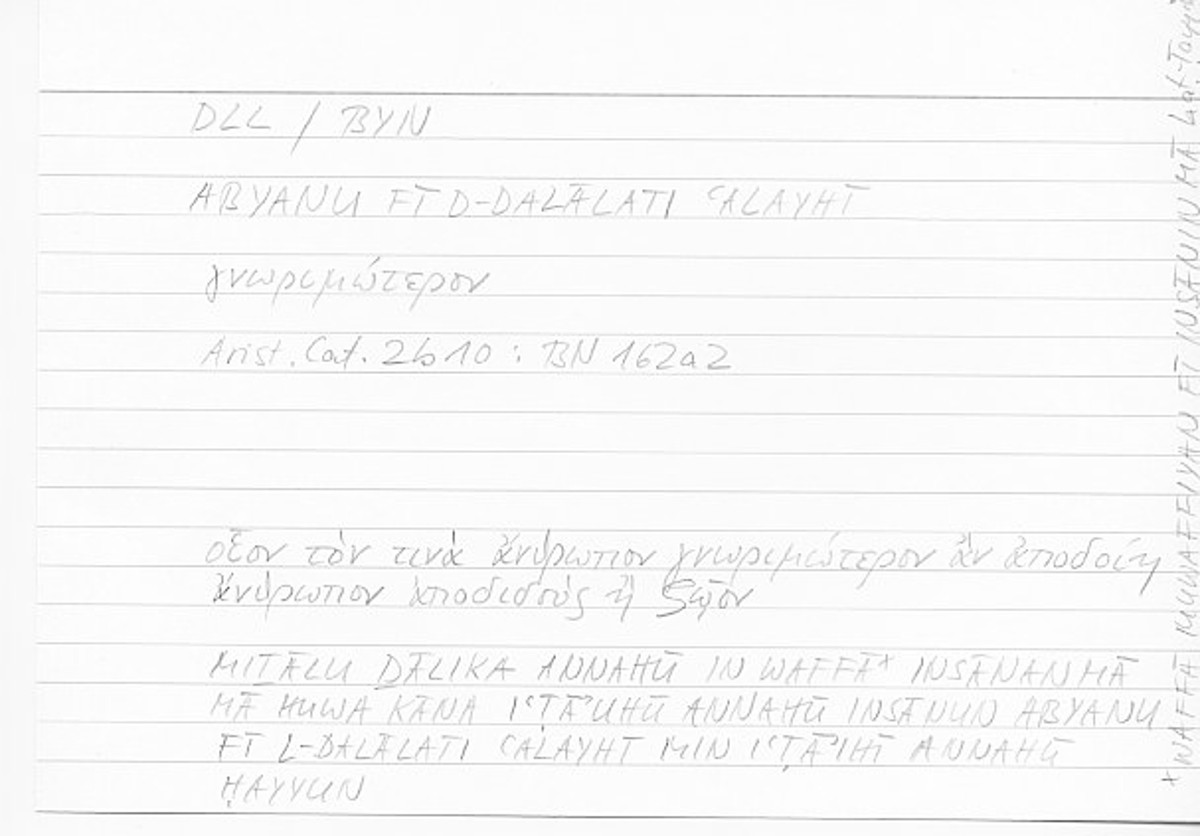 DLL / BYN
ABYANU FĪ D-DALĀLATI ʿALAYHĪ
γνωριμώτερον
Arist. Cat. 2b10 : BN 162a2
οἷον τὸν τινὰ ἄνθρωπον γνωριμώτερον ἂν ἀποδοίη
ἄνθρωπον ἀποδιδοὺς ἢ ζῷον
MIṮĀLU ḎĀLIKA ANNAHŪ IN WAFFĀ* INSĀNAN MĀ
MĀ HUWA KĀNA IʿṬĀʾUHŪ ANNAHŪ INSĀNUN ABYANU
FĪ L-DALĀLATI ʿALAYHĪ MIN IʿṬĀʾIHĪ ANNAHŪ
ḤAYYUN
* WAFFĀ MUWAFFIYAN FĪ INSĀNIN MĀ